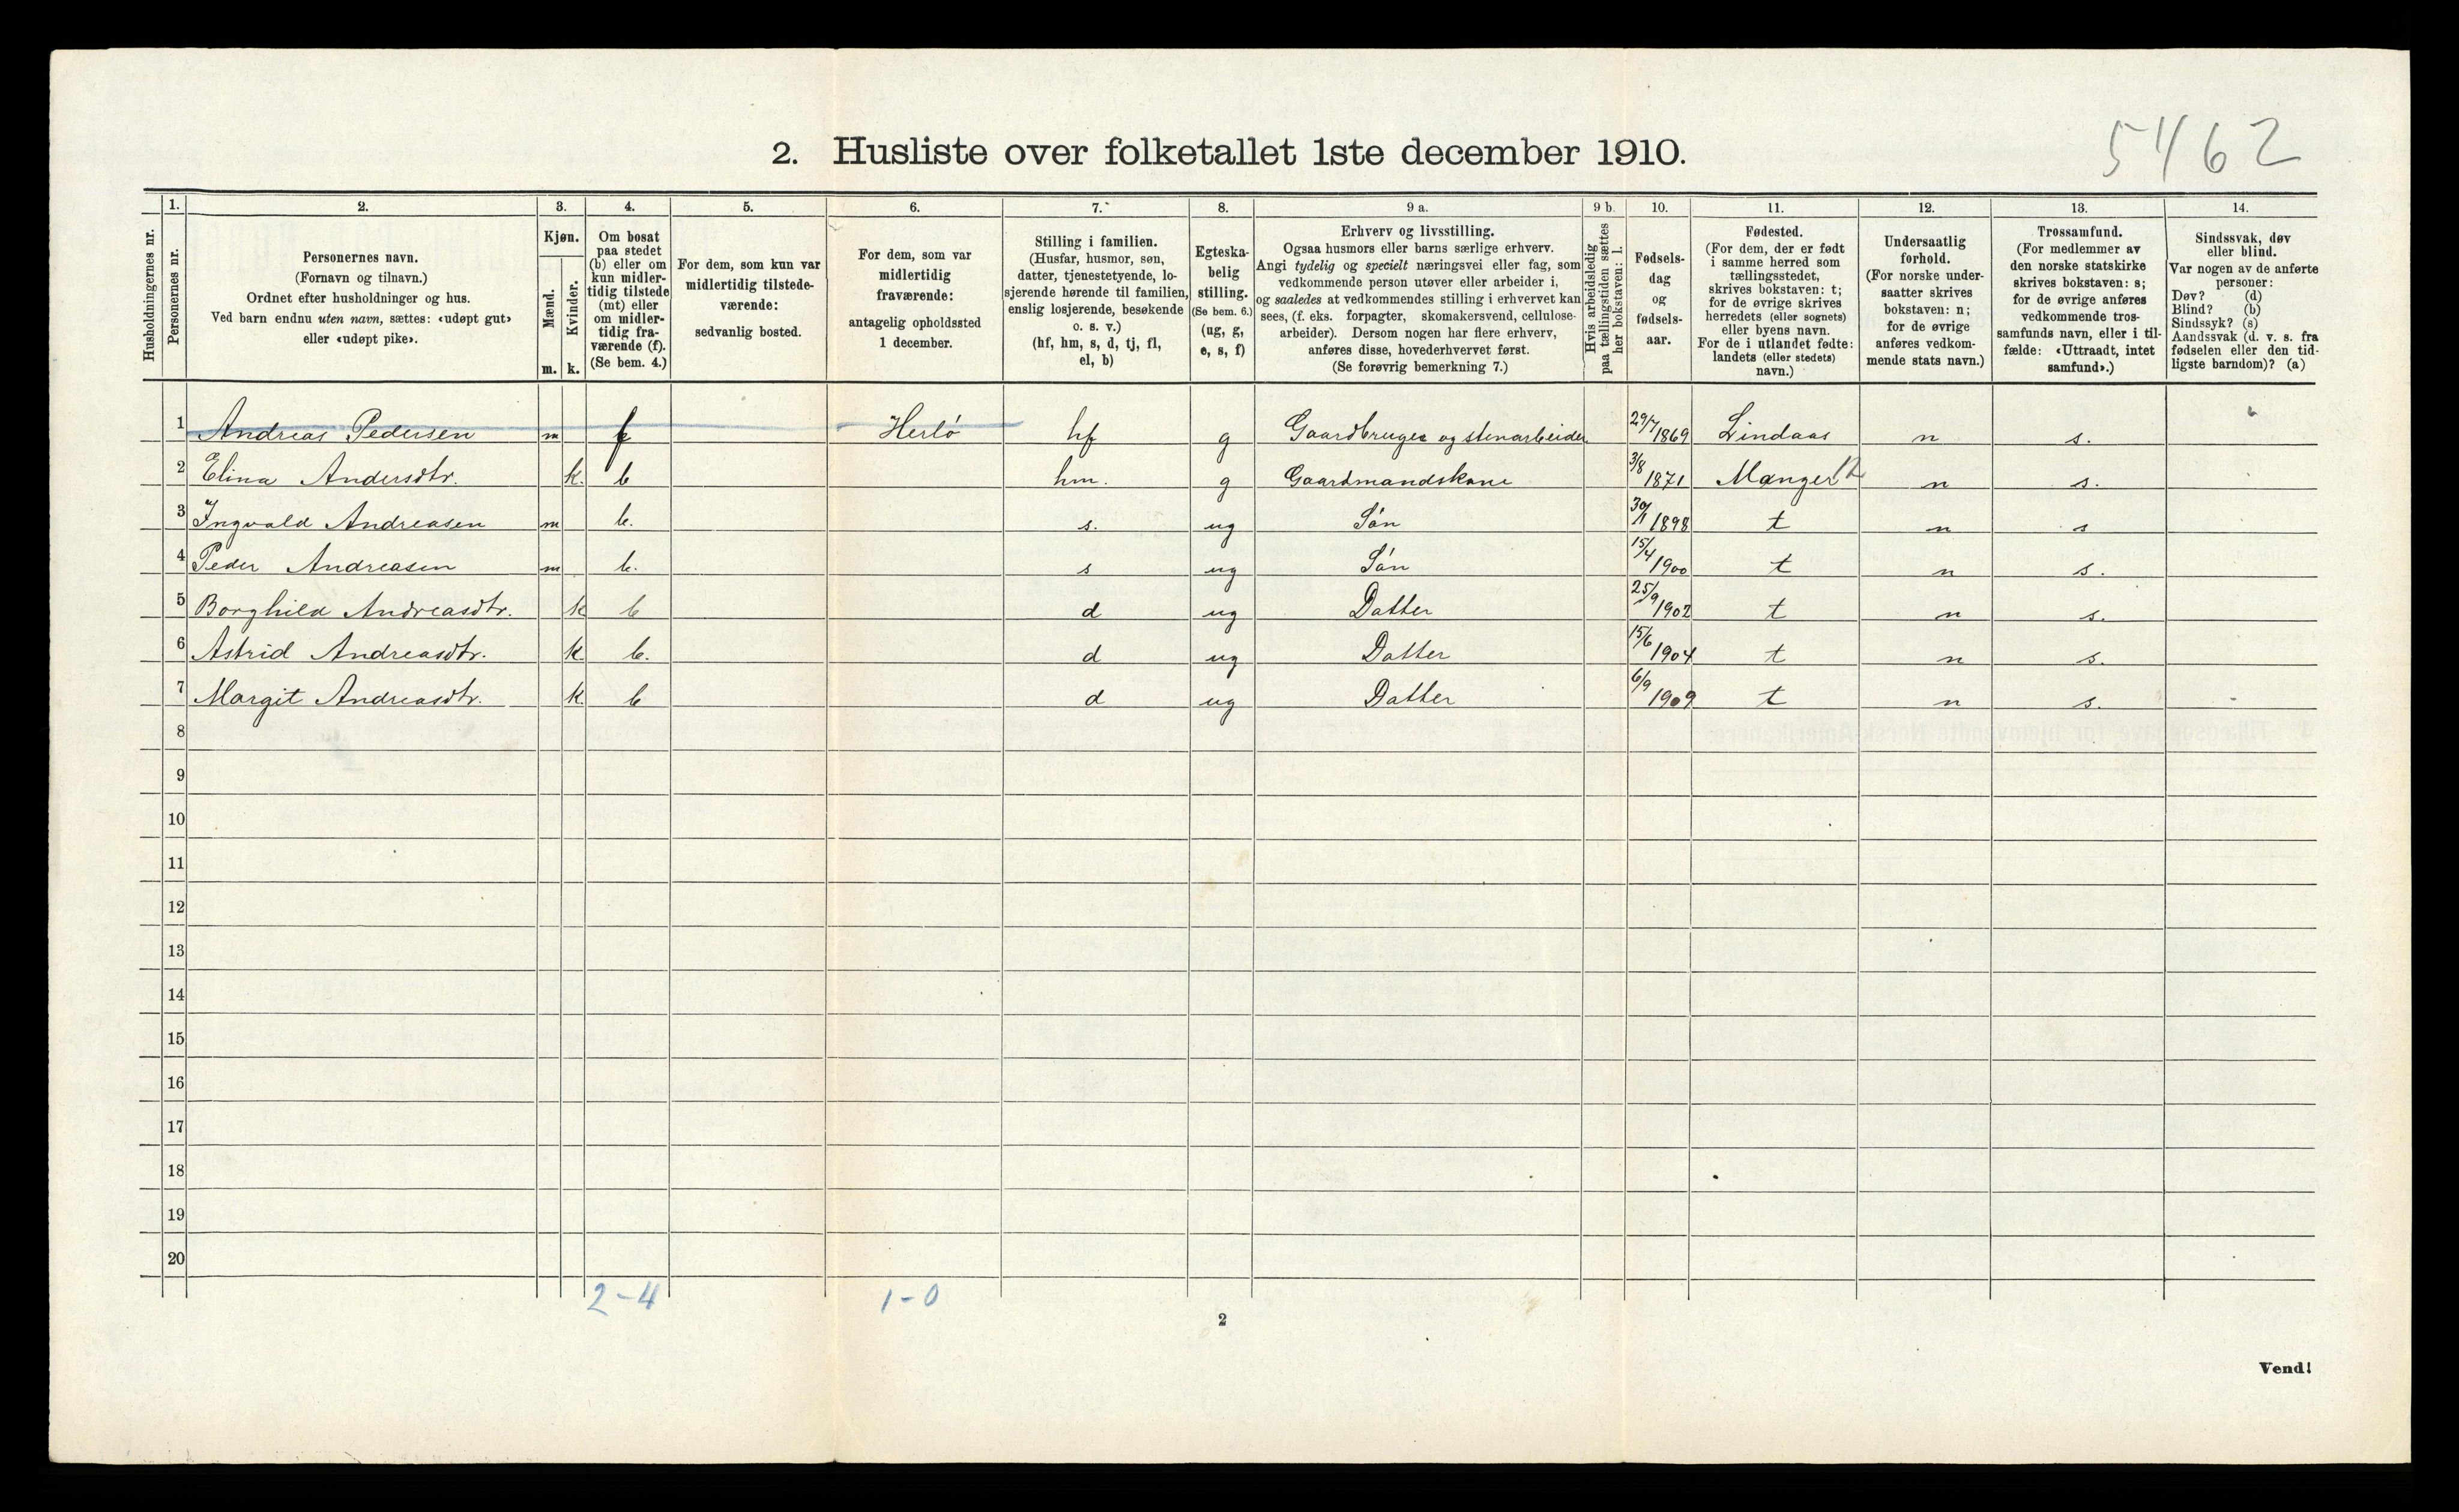 5462
2. Husliste over folketallet 1ste december 1910.
Husholdningernes nr.
1. Personernes nr.
2. Personernes navn. (Fornavn og tilnavn.) Ordnet efter husholdninger og hus. Ved barn endnu uten navn, sættes: «udøpt gut» eller «udøpt pike».
3. Kjøn. Mænd. m. Kvinder. k.
4. Om bosat paa stedet (b) eller om kun midlertidig tilstede (mt) eller om midlertidig fraværende (f). (Se bem. 4.)
5. For dem, som kun var midlertidig tilstedeværende: sedvanlig bosted.
6. For dem, som var midlertidig fraværende: antagelig opholdssted 1 december.
7. Stilling i familien. (Husfar, husmor, søn, datter, tjenestetyende, losjerende hørende til familien, enslig losjerende, besøkende o. s. v.) (hf, hm, s, d, tj, fl, el, b)
8. Egteskabelig stilling. (Se bem. 6.) (ug, g, e, s, f)
9 a. Erhverv og livsstilling. Ogsaa husmors eller barns særlige erhverv. Angi tydelig og specielt næringsvei eller fag, som vedkommende person utøver eller arbeider i, og saaledes at vedkommendes stilling i erhvervet kan sees, (f. eks. forpagter, skomakersvend, cellulosearbeider). Dersom nogen har flere erhverv, anføres disse, hovederhvervet først. (Se forøvrig bemerkning 7.)
9 b. Hvis arbeidsledig paa tællingstiden sættes her bokstaven: l.
10. Fødselsdag og fødselsaar.
11. Fødested. (For dem, der er født i samme herred som tællingsstedet, skrives bokstaven: t; for de øvrige skrives herredets (eller sognets) eller byens navn. For de i utlandet fødte: landets (eller stedets) navn.)
12. Undersaatlig forhold. (For norske undersaatter skrives bokstaven: n; for de øvrige anføres vedkommende stats navn.)
13. Trossamfund. (For medlemmer av den norske statskirke skrives bokstaven: s; for de øvrige anføres vedkommende trossamfunds navn, eller i tilfælde: «Uttraadt, intet samfund».)
14. Sindssvak, døv eller blind. Var nogen av de anførte personer: Døv? (d) Blind? (b) Sindssyk? (s) Aandssvak (d. v. s. fra fødselen eller den tidligste barndom)? (a)
1 Andreas Pedersen m f Herlö hf g Gaardbruger og stenarbeider 29/7 1869 Lindaas n s.
2 Elina Andersdtr. k. b hm. g Gaardmandskone 3/8 1871 Manger n s.
3 Ingvald Andreasen m b. s. ug Søn 30/1 1898 t n s
4 Peder Andreasen m b. s ug Søn 15/4 1900 t n s.
5 Borghild Andreasdtr. k b d ug Datter 25/9 1902 t n s.
6 Astrid Andreasdtr. k b. d ug Datter 15/6 1904 t n s.
7 Margit Andreasdtr. k. b d ug Datter 6/9 1909 t n s.
8
9
10
11
12
13
14
15
16
17
18
19
20
2-4 1-0
2
Vend!